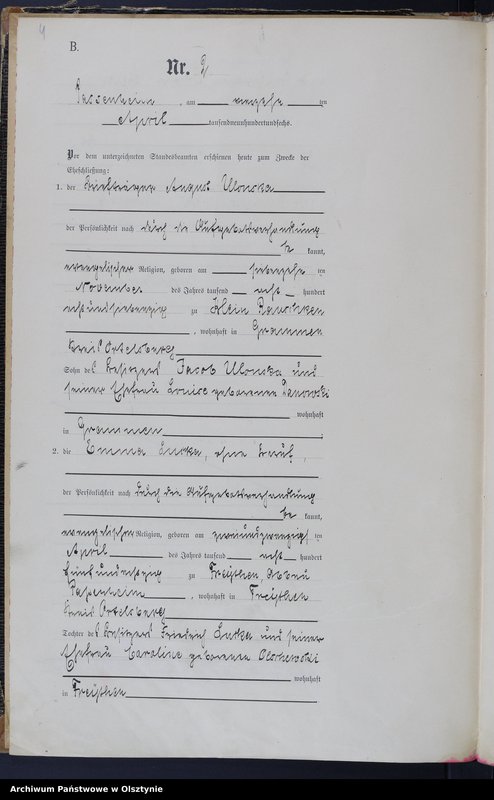 4
B.
Nr. 9
Passenheim, am vierzehn ten
April tausendneunhundertundsechs.
Vor dem unterzeichneten Standesbeamten erschienen heute zum Zwecke der
Eheschließung:
1. der Briefträger August Ulonska
der Persönlichkeit nach durch die Aufgebotsverhandlung
be kannt,
evangelischer Religion, geboren am siebzehn ten
November des Jahres tausend acht hundert
achtundsiebenzig zu Klein Rauschken
, wohnhaft in Grammen
Kreis Ortelsburg
Sohn des Besitzers Jacob Ulonska und
seiner Ehefrau Louise geborenen
wohnhaft
in Grammen
2. die Emma Lurka, ohne Beruf,
der Persönlichkeit nach durch die Aufgebotsverhandlung
be kannt,
evangelischer Religion, geboren am zweiundzwanzigs ten
April des Jahres tausend acht hundert
fünfundachtzig zu Freythen, Abbau
Passenheim, wohnhaft in Freythen
Kreis Ortelsburg
Tochter des Besitzers Friedrich Lurka und seiner
Ehefrau Caroline geborenen Olschewski
wohnhaft
in Freythen
Archiwum Państwowe w Olsztynie